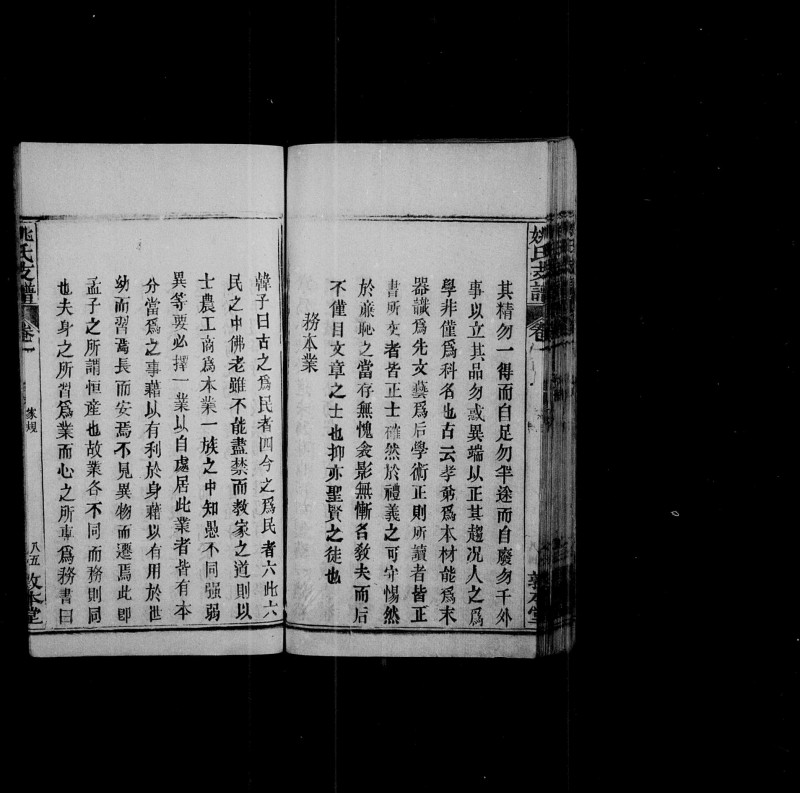 姚氏支譜
卷一
其精勿一得而自足勿半途而自廢勿千外
事以立其品勿惑異端以正其趨况人之爲
學非僅爲科名也古云孝弟爲本材能爲末
器識爲先文藝爲后學術正則所讀者皆正
書所交者皆正士確然於禮義之可守惕然
於亷恥之當存無愧衾影無慚名敎夫而后
不僅目文章之士也抑亦聖賢之徒也
務本業
韓子曰古之爲民者四今之爲民者六此六
民之中佛老雖不能盡禁而敎家之道則以
士農工商爲本業一族之中知愚不同强弱
異等要必擇一業以自處居此業者皆有本
分當爲之事藉以有利於身藉以有用於世
幼而習焉長而安焉不見異物而遷焉此卽
孟子之所謂恒産也故業各不同而務則同
也夫身之所習爲業而心之所專爲務書曰
姚氏支譜
卷一
家規
八五
敦本堂